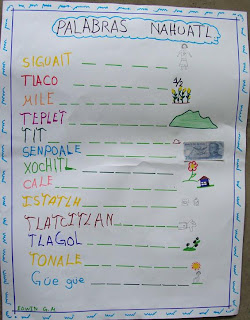 PALABRAS NAHUATL
SIGUAIT
TLACO ½
MILE
TEPLET
TIT
SENPOALE
XOCHITL
CALE
ISTATLH
TLATCITLAN
TLAGOL
TONALE
Güe gue